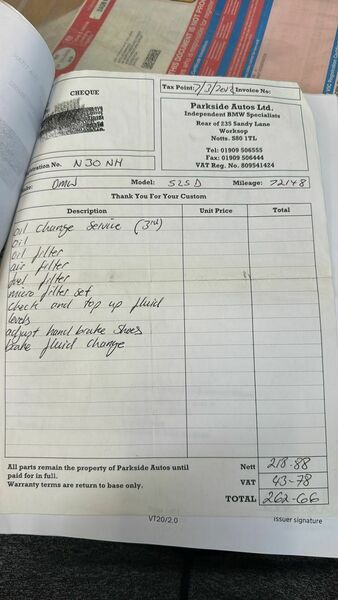 THIS DOCUMENT IS NOT PROO
CHEQUE
Tax Point: 7/3/2012 Invoice No:
Parkside Autos Ltd.
Independent BMW Specialists
Rear of 235 Sandy Lane
Worksop
Notts. S80 1TL
Tel: 01909 506555
Fax: 01909 506444
VAT Reg. No. 809541424
istration No. NJ0NH
BMW Model: 525D Mileage: 72148
Thank You For Your Custom
Description Unit Price Total
oil change service (3rd)
oil
oil filter
air filter
fuel filter
micro filter set
check and top up fluid
levels
adjust hand brake shoes
brake fluid change
All parts remain the property of Parkside Autos until
paid for in full.
Warranty terms are return to base only.
Nett 218-88
VAT 43-78
TOTAL 262-66
VT20/2.0 issuer signature